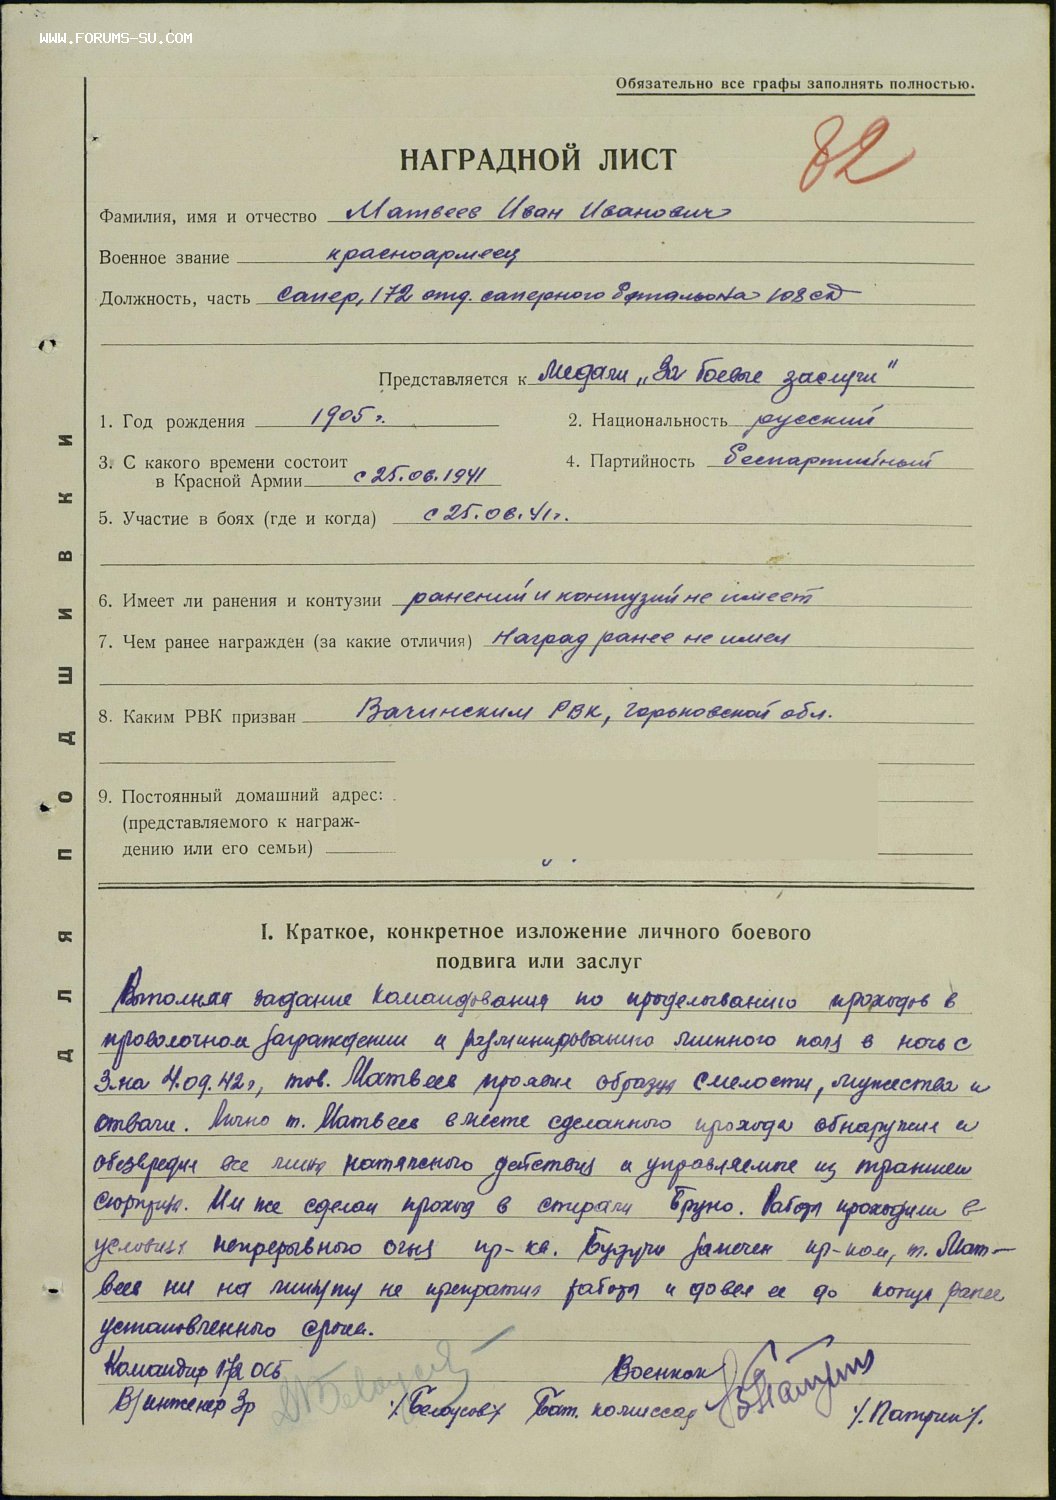 WWW.FORUMS-SU.COM
Обязательно все графы заполнять полностью.
82
НАГРАДНОЙ ЛИСТ
Фамилия, имя и отчество Матвеев Иван Иванович
Военное звание красноармеец
Должность, часть сапер, 172 отд. саперного батальона 108 сд
Представляется к Медали „За боевые заслуги"
1. Год рождения 1905 г. 2. Национальность русский
3. С какого времени состоит
в Красной Армии с 25.06.1941 4. Партийность беспартийный
5. Участие в боях (где и когда) с 25.06.41 г.
6. Имеет ли ранения и контузии ранений и контузий не имеет
7. Чем ранее награжден (за какие отличия) Наград ранее не имел
8. Каким РВК призван Вачинским РВК, Горьковской обл.
9. Постоянный домашний адрес:
(представляемого к награж-
дению или его семьи)
ДЛЯ ПОДШИВКИ
I. Краткое, конкретное изложение личного боевого
подвига или заслуг
Выполняя задание командования по проделыванию проходов в
проволочном заграждении и разминированию минного поля в ночь с
3 на 4.09.42 г., тов. Матвеев проявил образцы смелости, мужества и
отваги. Лично т. Матвеев в месте сделанного прохода обнаружил и
обезвредил все мины натяжного действия и управляемые из траншеи
сюрпризы. Им же сделан проход в спирали Бруно. Работа проходила в
условиях непрерывного огня пр-ка. Будучи замечен пр-ком, т. Мат-
веев ни на минуту не прекратил работы и довел ее до конца ранее
установленного срока.
Командир 172 ОСБ Военком
В/инженер 3р /Белоусов/ Бат. комиссар /Патрин/.